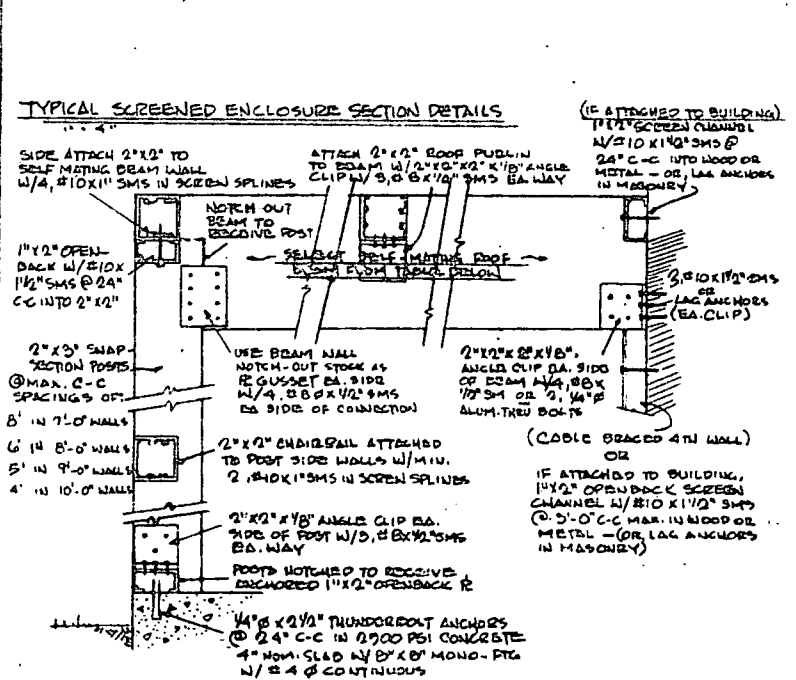 TYPICAL SCREENED ENCLOSURE SECTION DETAILS
SIDE ATTACH 2"X2" TO
SELF MATING BEAM WALL
W/4, #10X1" SMS IN SCREEN SPLINES
ATTACH 2"X2" ROOF PURLIN
TO BEAM W/2"X2"X2"X1/8" ANGLE
CLIP W/3, #8X1/2" SMS EA. WAY
(IF ATTACHED TO BUILDING)
1"X2" SCREEN CHANNEL
W/#10X1 1/2" SMS @
24" C-C INTO WOOD OR
METAL - OR, LAG ANCHORS
IN MASONRY
NOTCH-OUT
BEAM TO
RECEIVE POST
1"X2" OPEN-
BACK W/#10X
1 1/2" SMS @ 24"
C-C INTO 2"X2"
SELECT SELF-MATING ROOF
BEAM FROM TABLE BELOW
3, #10X1 1/2" SMS
OR
LAG ANCHORS
(EA. CLIP)
2"X3" SNAP-
SECTION POSTS
@ MAX. C-C
SPACINGS OF:
8' IN 7'-0" WALLS
6' IN 8'-0" WALLS
5' IN 9'-0" WALLS
4' IN 10'-0" WALLS
USE BEAM WALL
NOTCH-OUT STOCK AS
PL GUSSET EA. SIDE
W/4, #8 Ø X 1/2" SMS
EA SIDE OF CONNECTION
2"X2"X2"X1/8"
ANGLE CLIP EA. SIDE
OF BEAM W/4, #8X
1/2" SM OR 2, 1/4" Ø
ALUM. THRU BOLTS
2"X2" CHAIRRAIL ATTACHED
TO POST SIDE WALLS W/MIN.
2, #10X1" SMS IN SCREEN SPLINES
(CABLE BRACED 4TH WALL)
OR
IF ATTACHED TO BUILDING,
1"X2" OPENBACK SCREEN
CHANNEL W/#10 X 1 1/2" SMS
@ 3'-0" C-C MAX. IN WOOD OR
METAL - (OR, LAG ANCHORS
IN MASONRY)
2"X2"X1/8" ANGLE CLIP EA.
SIDE OF POST W/3, #8X1/2" SMS
EA. WAY
POSTS NOTCHED TO RECEIVE
ANCHORED 1"X2" OPENBACK PL
1/4" Ø X 2 1/2" THUNDERBOLT ANCHORS
@ 24" C-C IN 2500 PSI CONCRETE
4" NOM. SLAB W/ 8" X 8" MONO-FTG
W/ #4 Ø CONTINUOUS